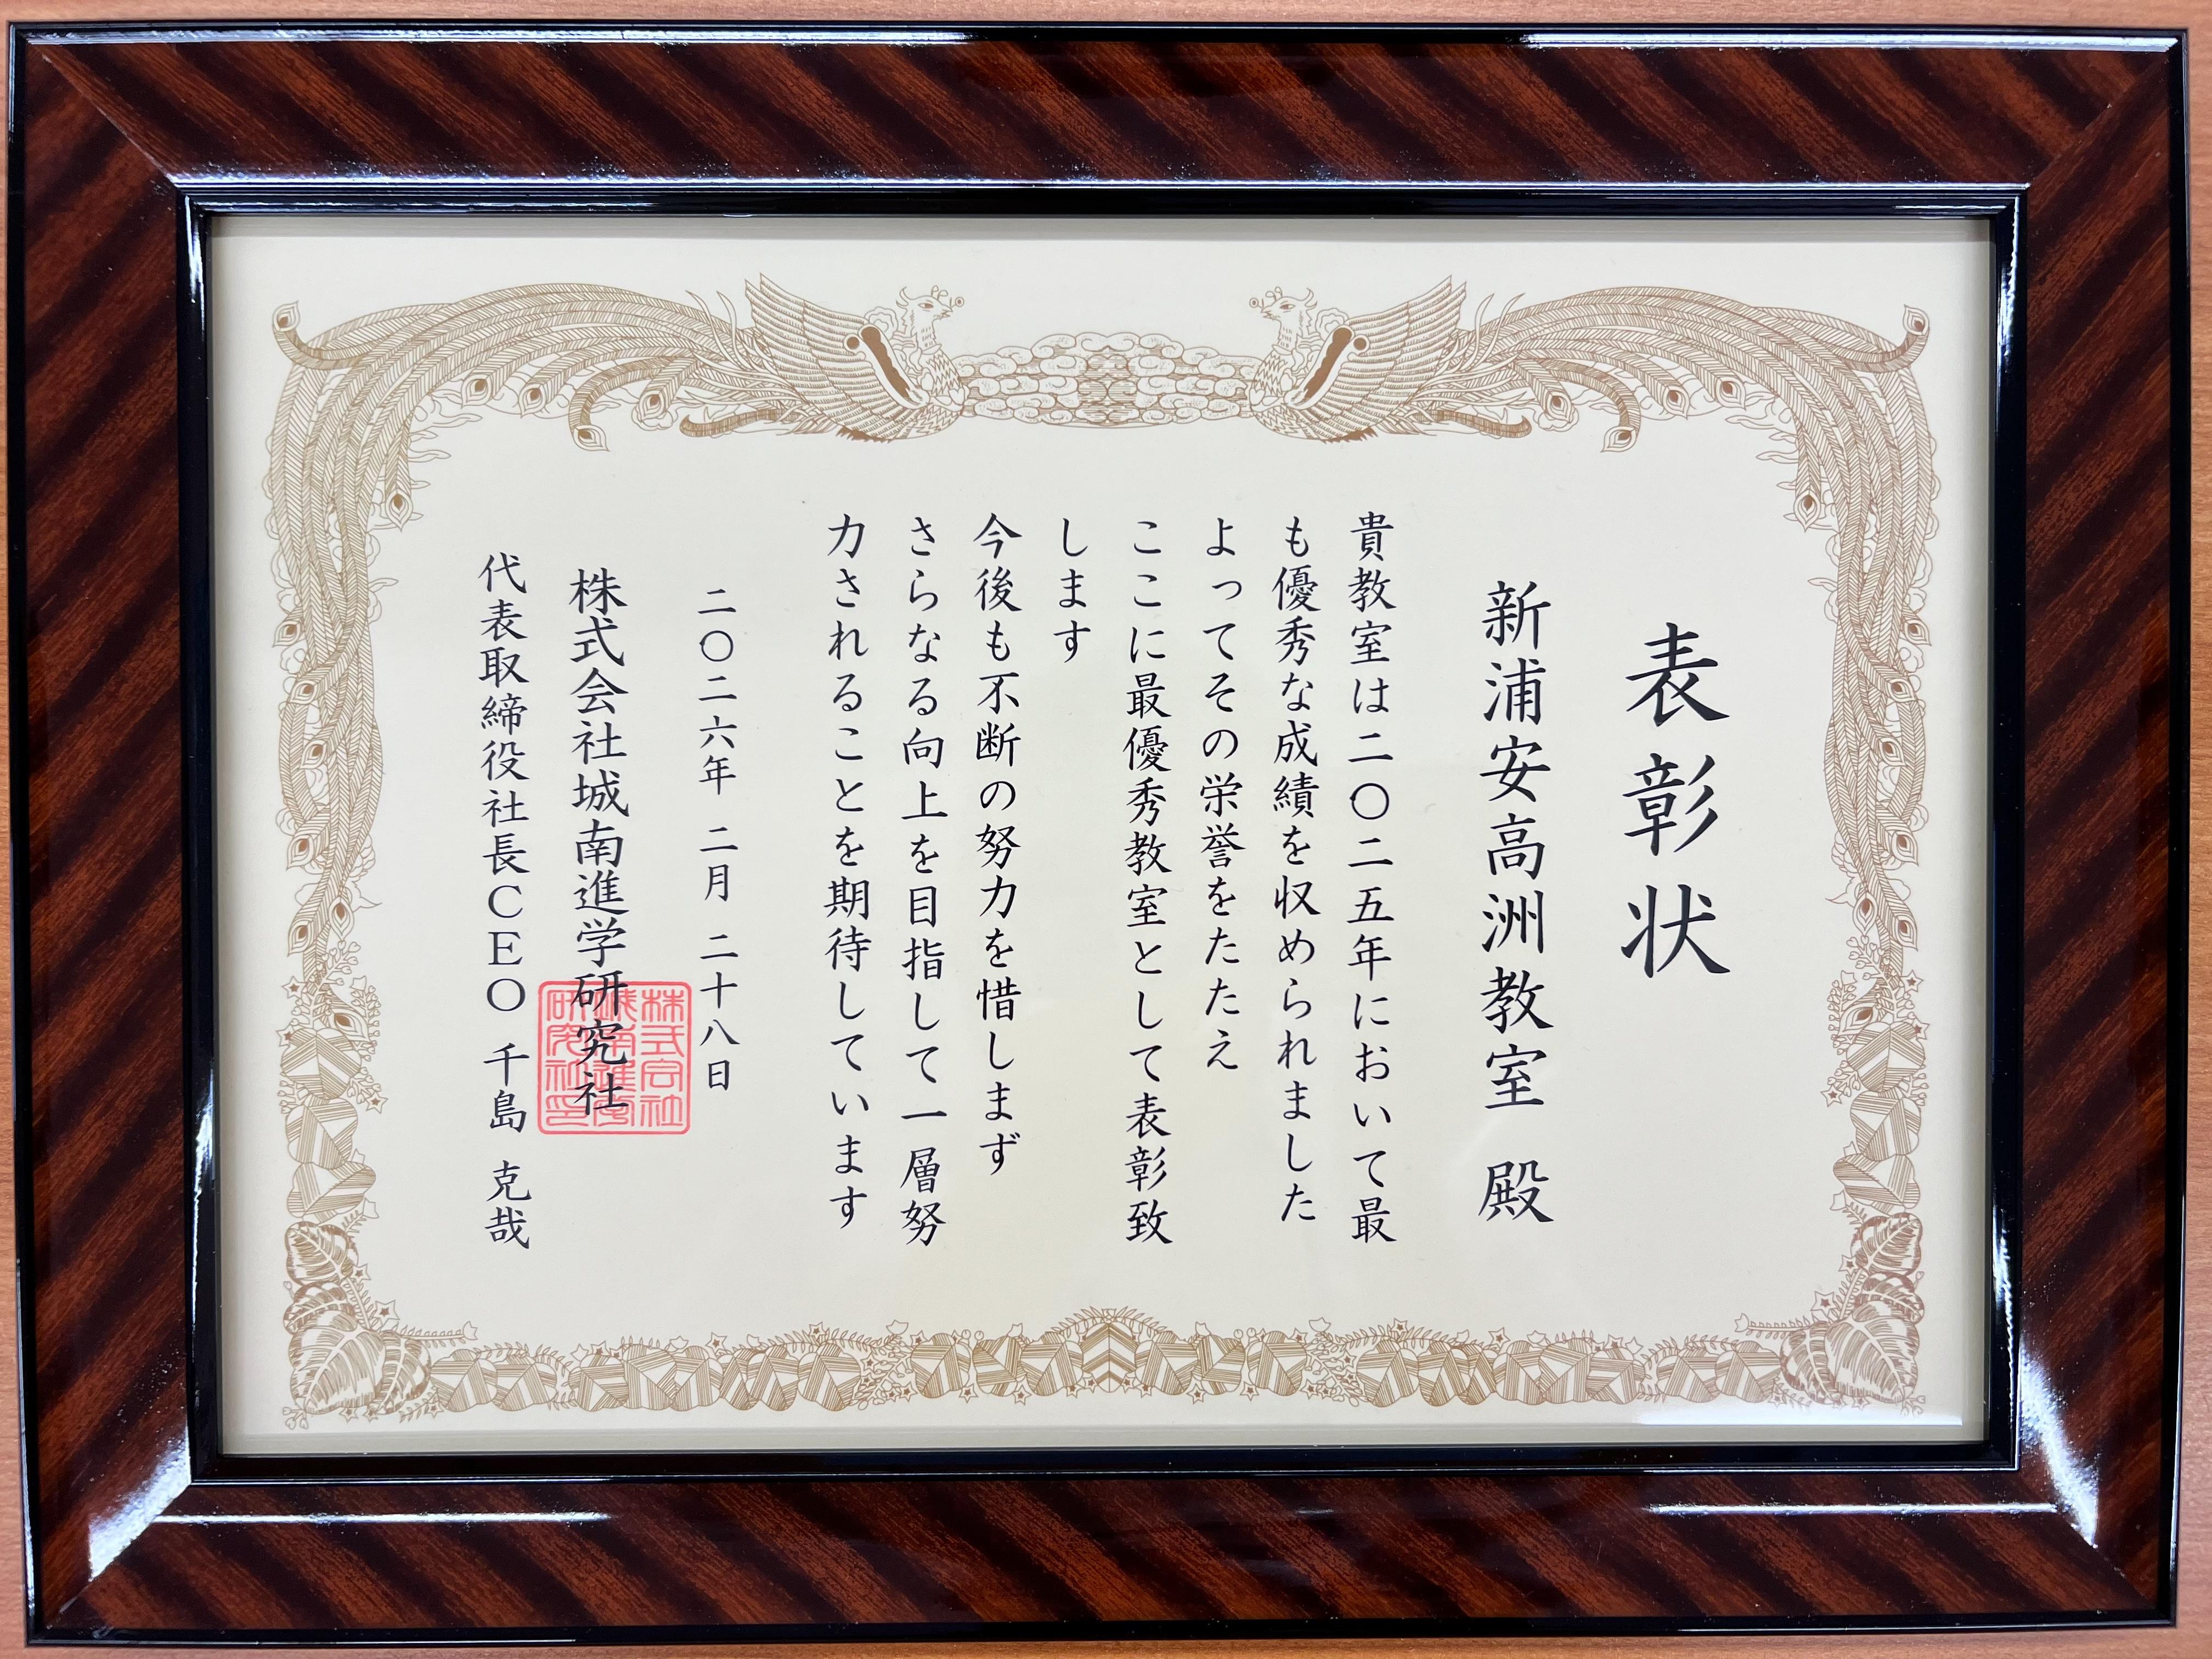 表彰状
新浦安高洲教室 殿
貴教室は二〇二五年において最
も優秀な成績を収められました
よってその栄誉をたたえ
ここに最優秀教室として表彰致
します
今後も不断の努力を惜しまず
さらなる向上を目指して一層努
力されることを期待しています
二〇二六年 二月 二十八日
株式会社城南進学研究社
代表取締役社長CEO 千島 克哉